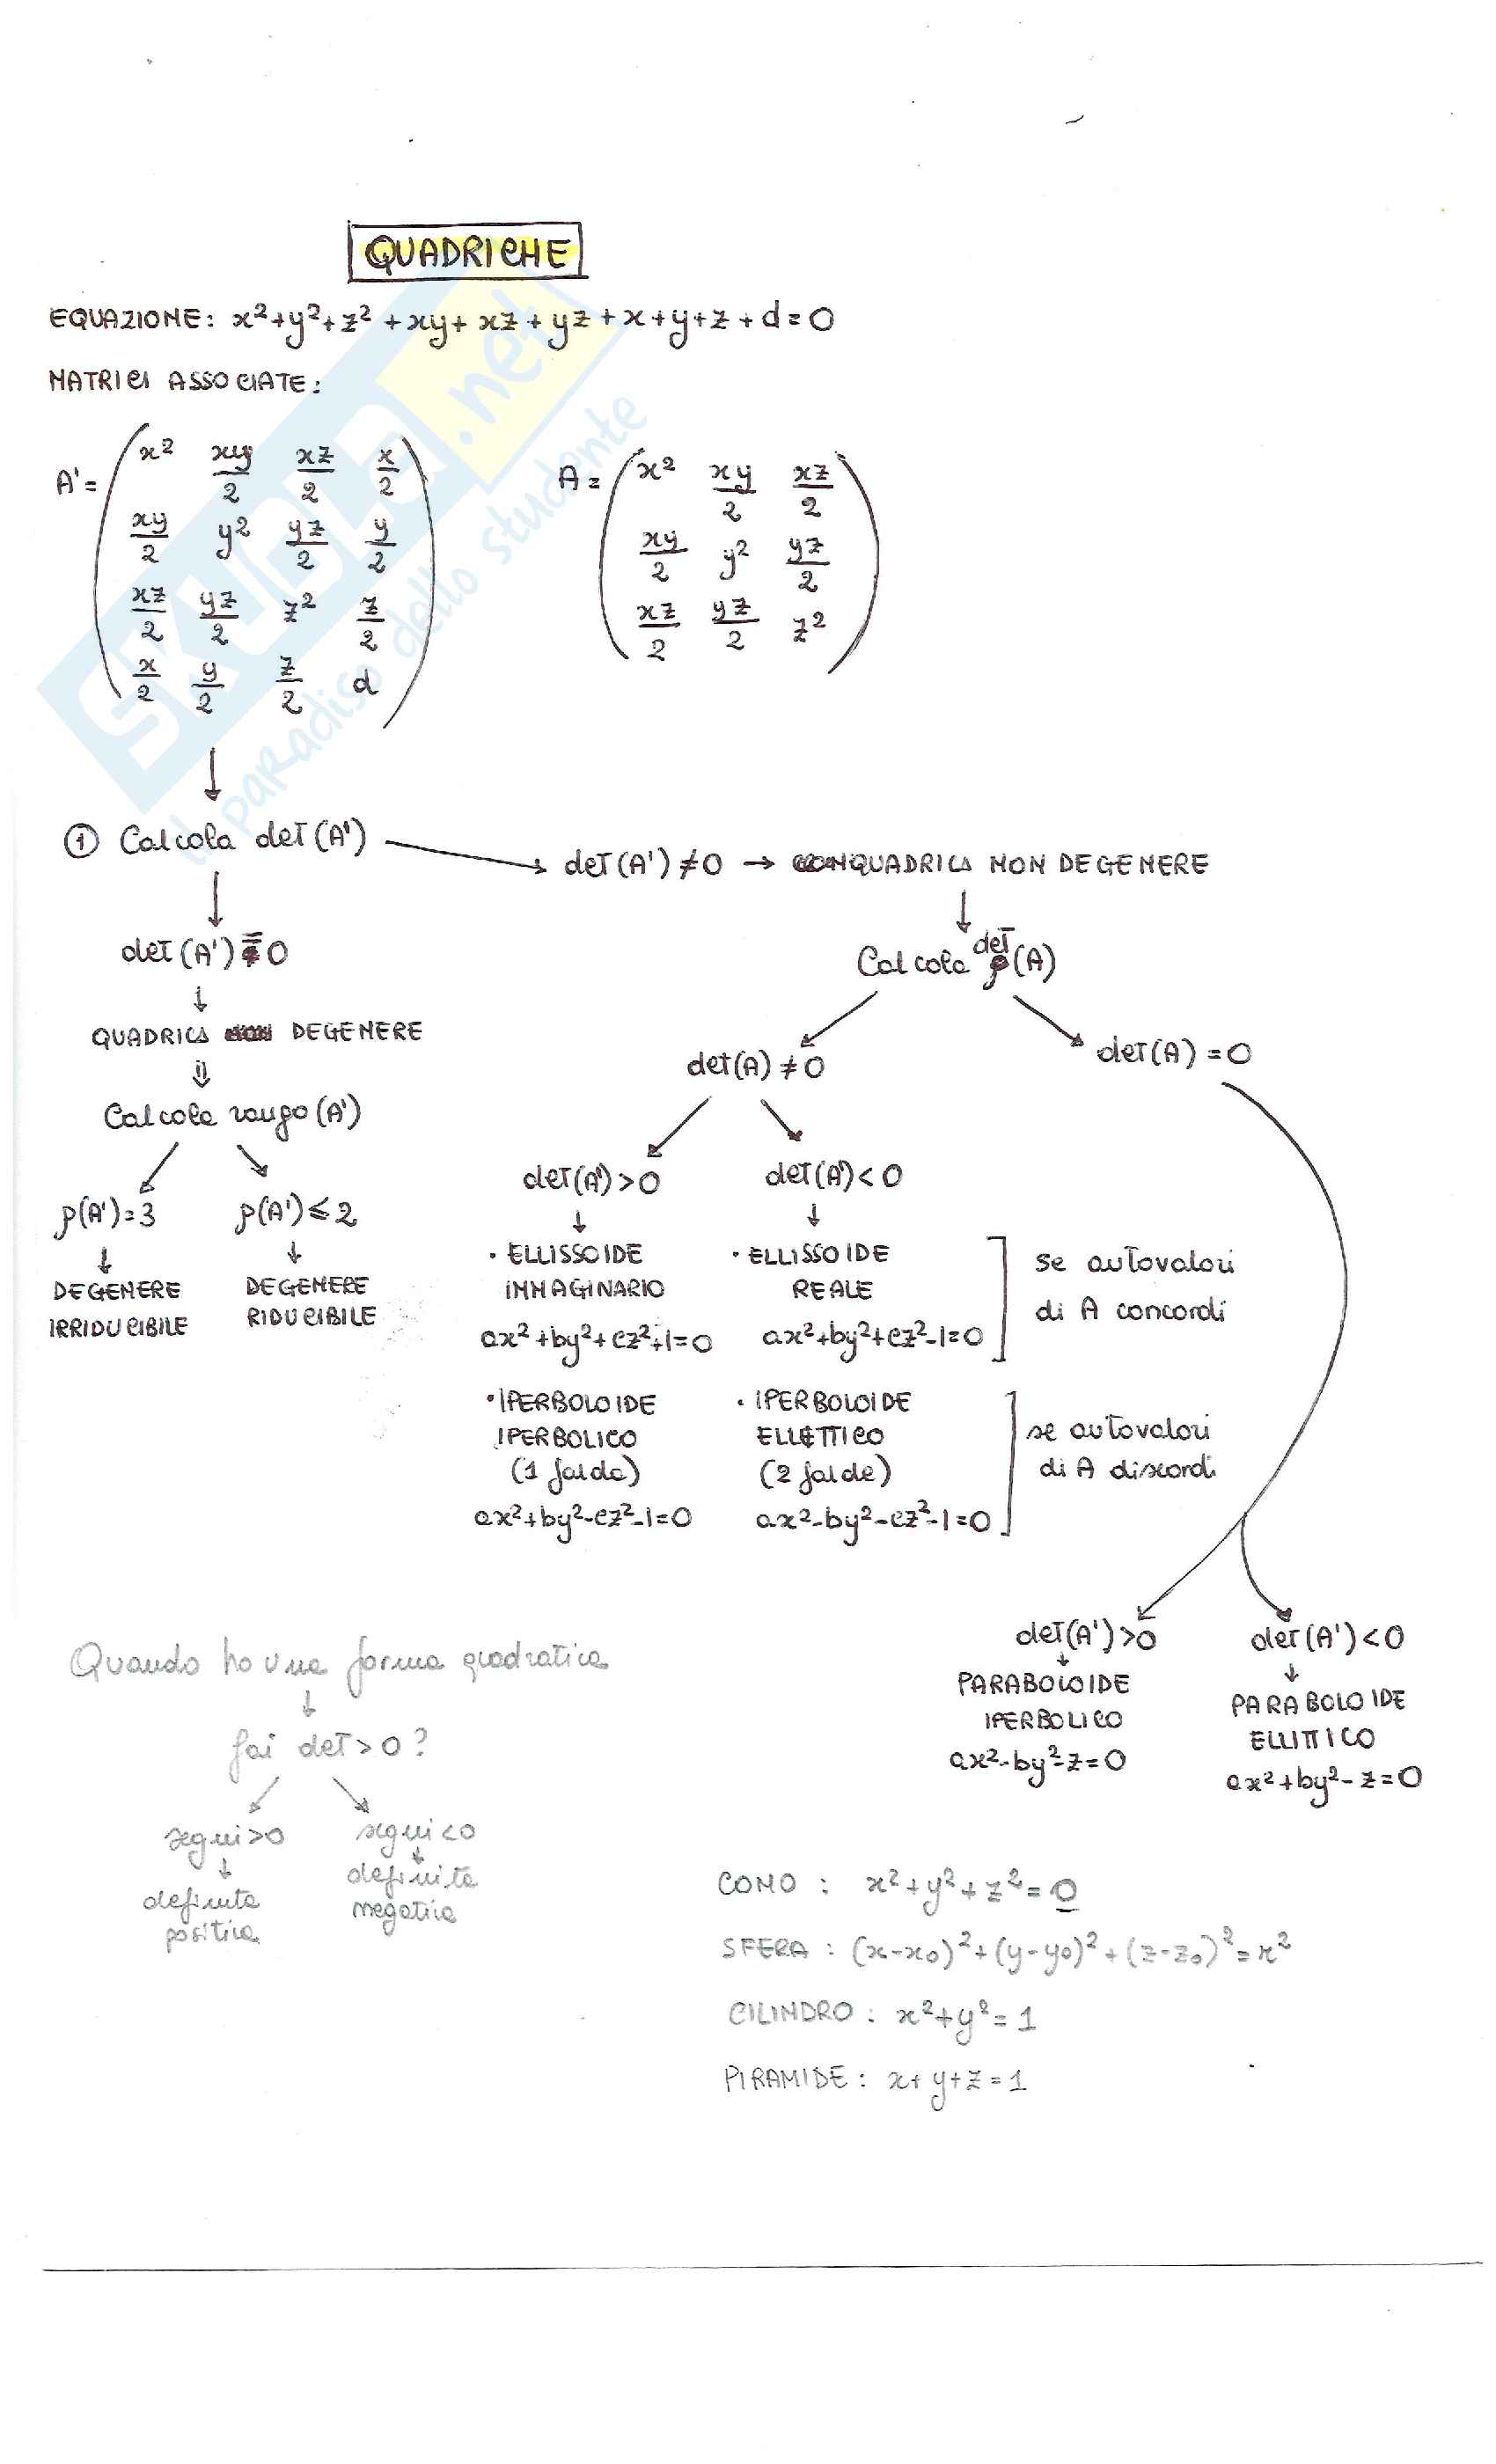 QUADRICHE
EQUAZIONE: x²+y²+z²+xy+xz+yz+x+y+z+d=0
MATRICI ASSOCIATE:
A'= ( x² xy/2 xz/2 x/2
xy/2 y² yz/2 y/2
xz/2 yz/2 z² z/2
x/2 y/2 z/2 d )
A= ( x² xy/2 xz/2
xy/2 y² yz/2
xz/2 yz/2 z² )
SKUOLa.net
il paradiso dello studente
① Calcola det(A')
det(A')≠0 → QUADRICA NON DEGENERE
det(A')=0
QUADRICA DEGENERE
Calcola rango(A')
ρ(A')=3
DEGENERE
IRRIDUCIBILE
ρ(A')≤2
DEGENERE
RIDUCIBILE
Calcola det(A)
det(A)≠0
det(A)=0
det(A')>0
• ELLISSOIDE
IMMAGINARIO
ax²+by²+cz²+1=0
det(A')<0
• ELLISSOIDE
REALE
ax²+by²+cz²-1=0
se autovalori
di A concordi
• IPERBOLOIDE
IPERBOLICO
(1 falda)
ax²+by²-cz²-1=0
• IPERBOLOIDE
ELLETTICO
(2 falde)
ax²-by²-cz²-1=0
se autovalori
di A discordi
det(A')>0
PARABOLOIDE
IPERBOLICO
ax²-by²-z=0
det(A')<0
PARABOLOIDE
ELLITTICO
ax²+by²-z=0
Quando ho una forma quadratica
fai det>0?
segni>0
definita
positiva
segni<0
definita
negativa
CONO: x²+y²+z²=0
SFERA: (x-x₀)²+(y-y₀)²+(z-z₀)²=r²
CILINDRO: x²+y²=1
PIRAMIDE: x+y+z=1